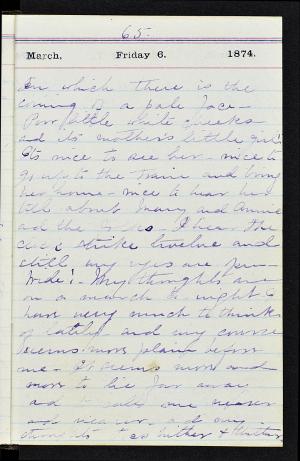 65.
March, Friday 6. 1874.
In which there is the
coming of a pale face -
Poor little white cheeks
and its mother's little girl!
It's nice to see her - nice to
go up to the train and bring
her home - nice to hear her
talk about Mary and Annie
and the I hear the
clock strike twelve and
still my eyes are
wide! - My thoughts are
on a march to-night I
have very much to think
of lately and my course
seems more plain before
me - It seems more and
more to lie far away
and takes me nearer
and nearer - and my
thoughts go hither & thither